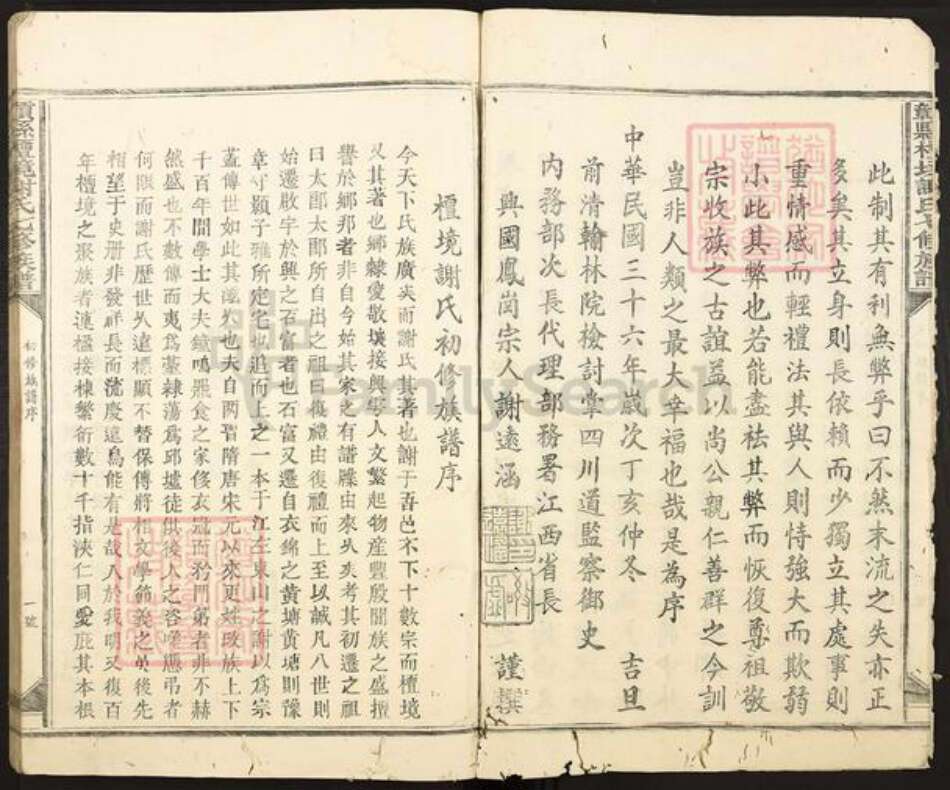 此制其有利無弊乎曰不然末流之失亦正
多矣其立身則長依賴而少獨立其處事則
重情感而輕禮法其與人則恃強大而欺弱
小此其弊也若能盡祛其弊而恢復尊祖敬
宗收族之古誼益以尚公親仁善群之今訓
豈非人類之最大幸福也哉是為序
中華民國三十六年歲次丁亥仲冬 吉旦
前清翰林院檢討掌四川道監察御史
內務部次長代理部務署江西省長
興國鳳崗宗人謝遠涵 謹撰
檀境謝氏初修族譜序
今天下氏族廣矣而謝氏其著也謝于吾邑不下十數宗而檀境
又其著也鄉隸愛敬壤接興寧人文繁起物產豐殷閥族之盛擅
譽於鄉邦者非自今始其家之有譜牒由來久矣考其初遷之祖
曰太郎太郎所自出之祖曰復禮由復禮而上至以誠凡八世則
始遷啟宇於興之石富者也石富又遷自衣錦之黃塘黃塘則豫
章守顥子雅所定宅也追而上之一本于江左東山之謝以為宗
蓋傳世如此其遠也夫自兩晉隋唐宋元以來更姓改族上下
千百年間學士大夫鐘鳴鼎食之家侈衣冠而矜門第者非不赫
然盛也不數傳而夷為臺隸蕩為邱墟徒供後人之咨嗟憑弔者
何限而謝氏歷世久遠標顯不替保傅將相文學節義之英後先
相望于史冊非發祥長而流慶遠烏能有是哉入於我明又復百
年檀境之聚族者連楹接棟繁衍數十千指浹仁同愛庇其本根
初修族譜序
一號
FamilySearch